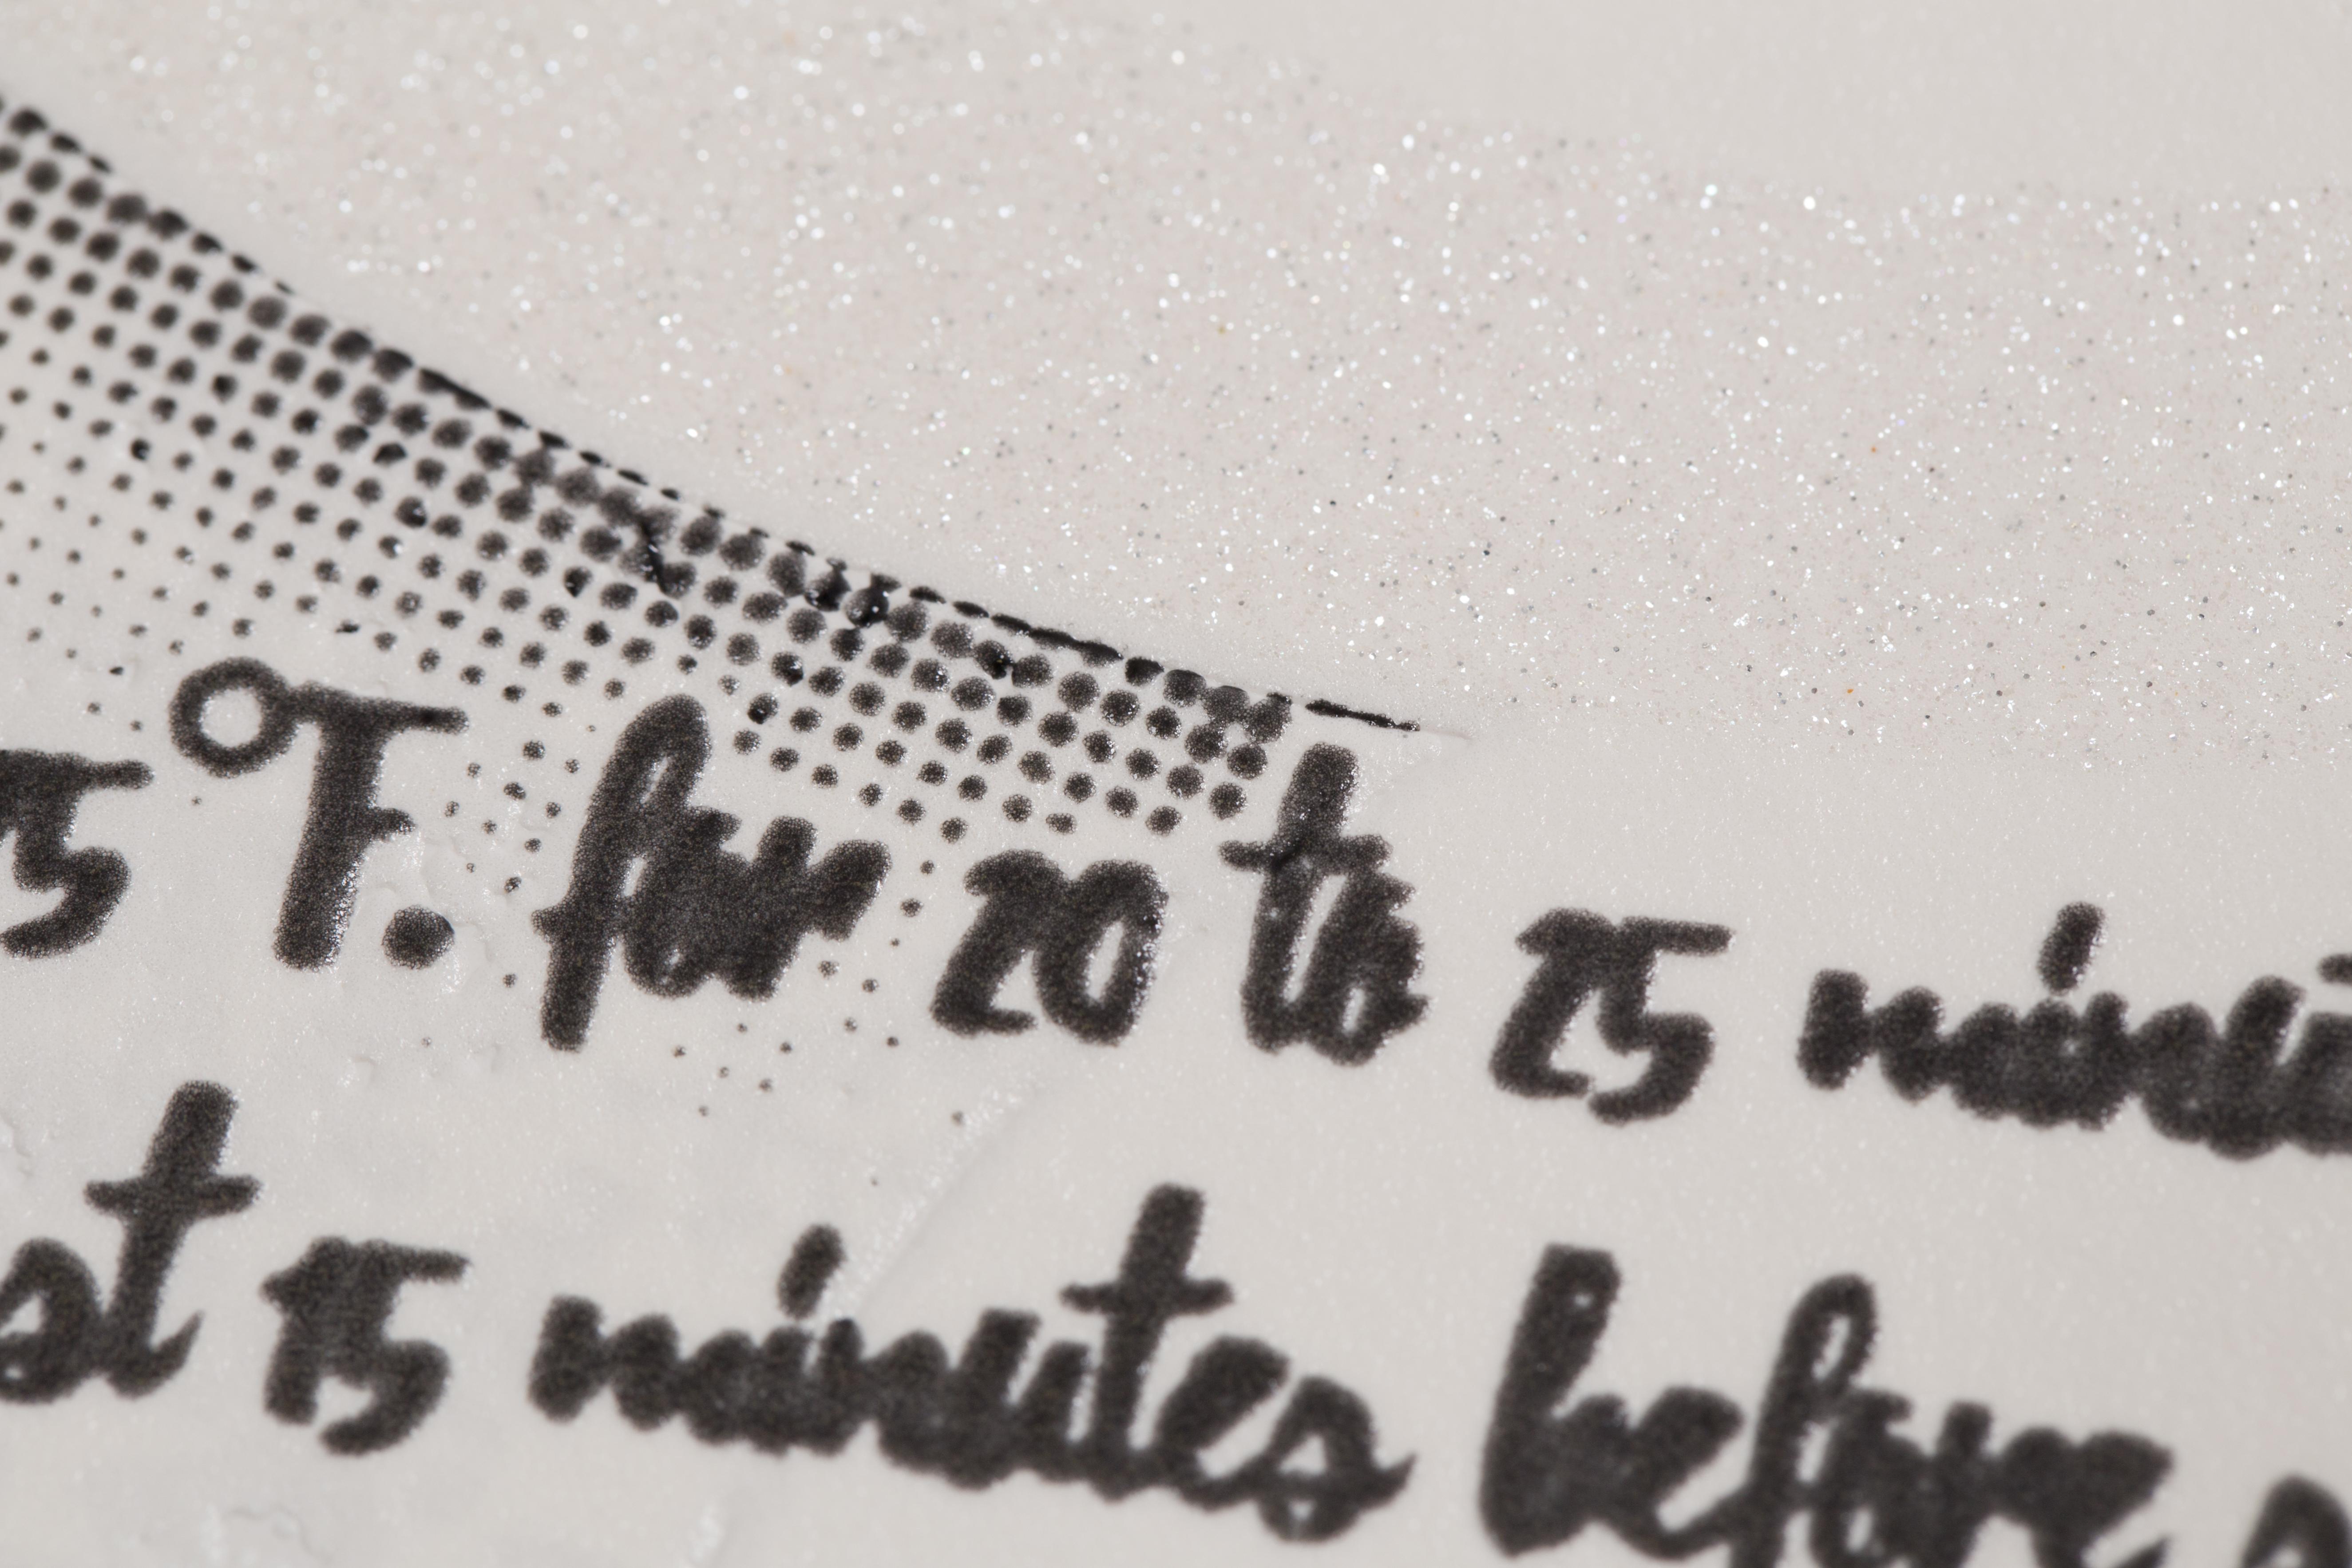 5°F. for 20 to 25 minut
st 15 minutes before